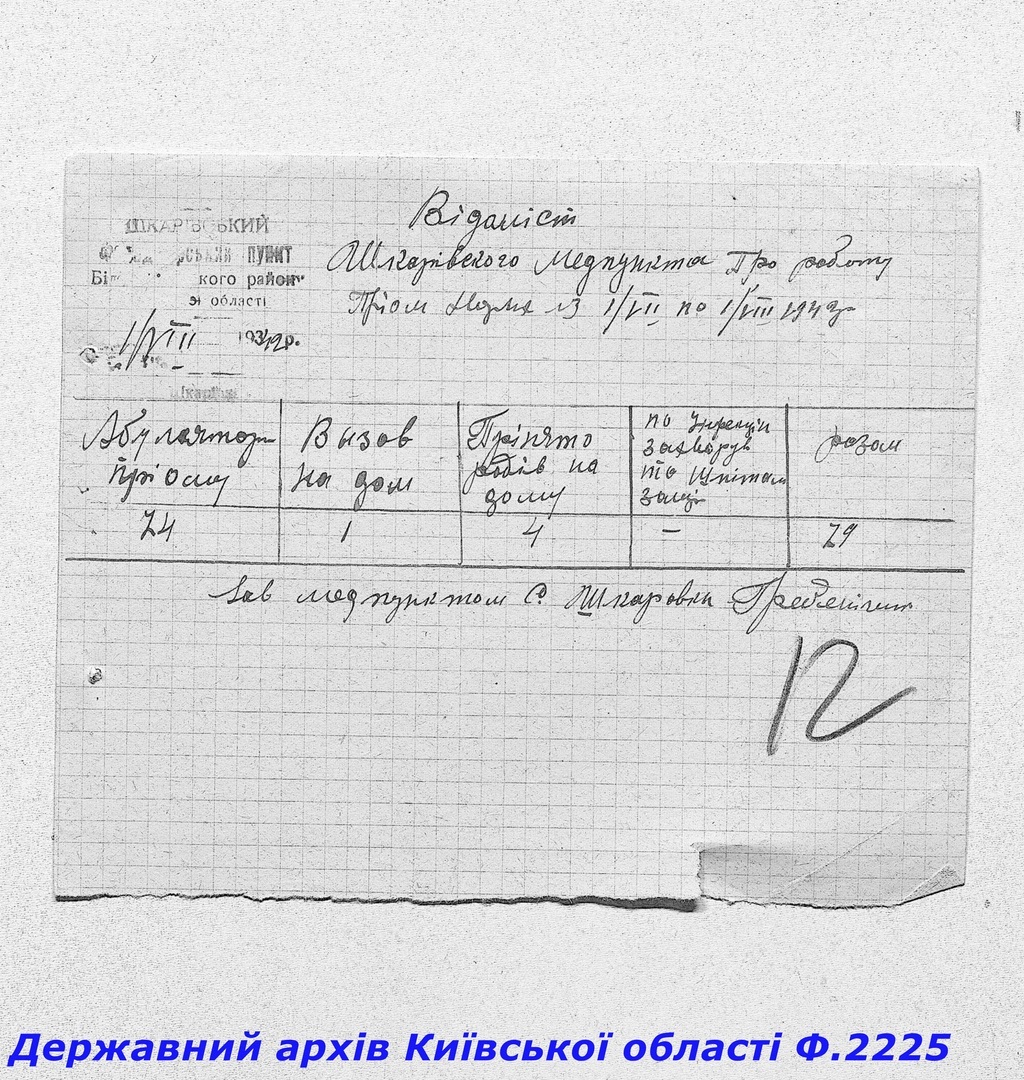 ШКАРІВСЬКИЙ
ПУНКТ
кого район
області
1/VIII 1942р.
Відомість
Шкарівского Медпункта Про роботу
Пріом з 1/VII по 1/VIII 1942р
Абулятор
пріому
Вызов
на дом
Прінято
родів на
дому
по Інфекціи
Захворув
то шпітал
заціі
разом
24
1
4
—
29
Зав медпунктом С. Шкаровки
12
Державний архів Київської області Ф.2225